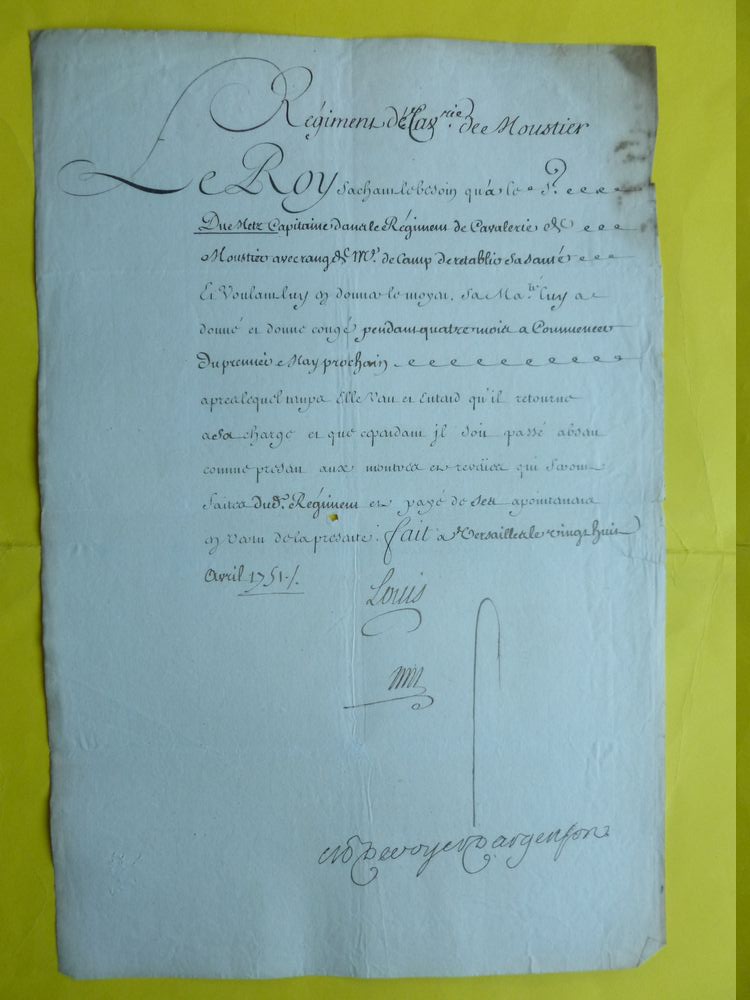 Régiment de Cav.rie de Moustier
Le Roy sachant le besoin qu'a le S.r
Du Metz Capitaine dans le Régiment de Cavalerie de
Moustier avec rang de M.e de Camp de retablir sa santé
Et Voulant luy en donner le moyen. Sa Ma.té luy a
donné et donne congé pendant quatre mois a Commencer
Du premier May prochain
apres lequel temps Elle Veut et Entend qu'il retourne
a sa charge et que cependant jl soit passé absent
comme present aux montres et reveües qui seront
faites dud.t Régiment et payé de ses apointements
en Vertu de la presente. fait a Versailles le vingt huit
Avril 1751./.
Louis
M De voyer D'argenson